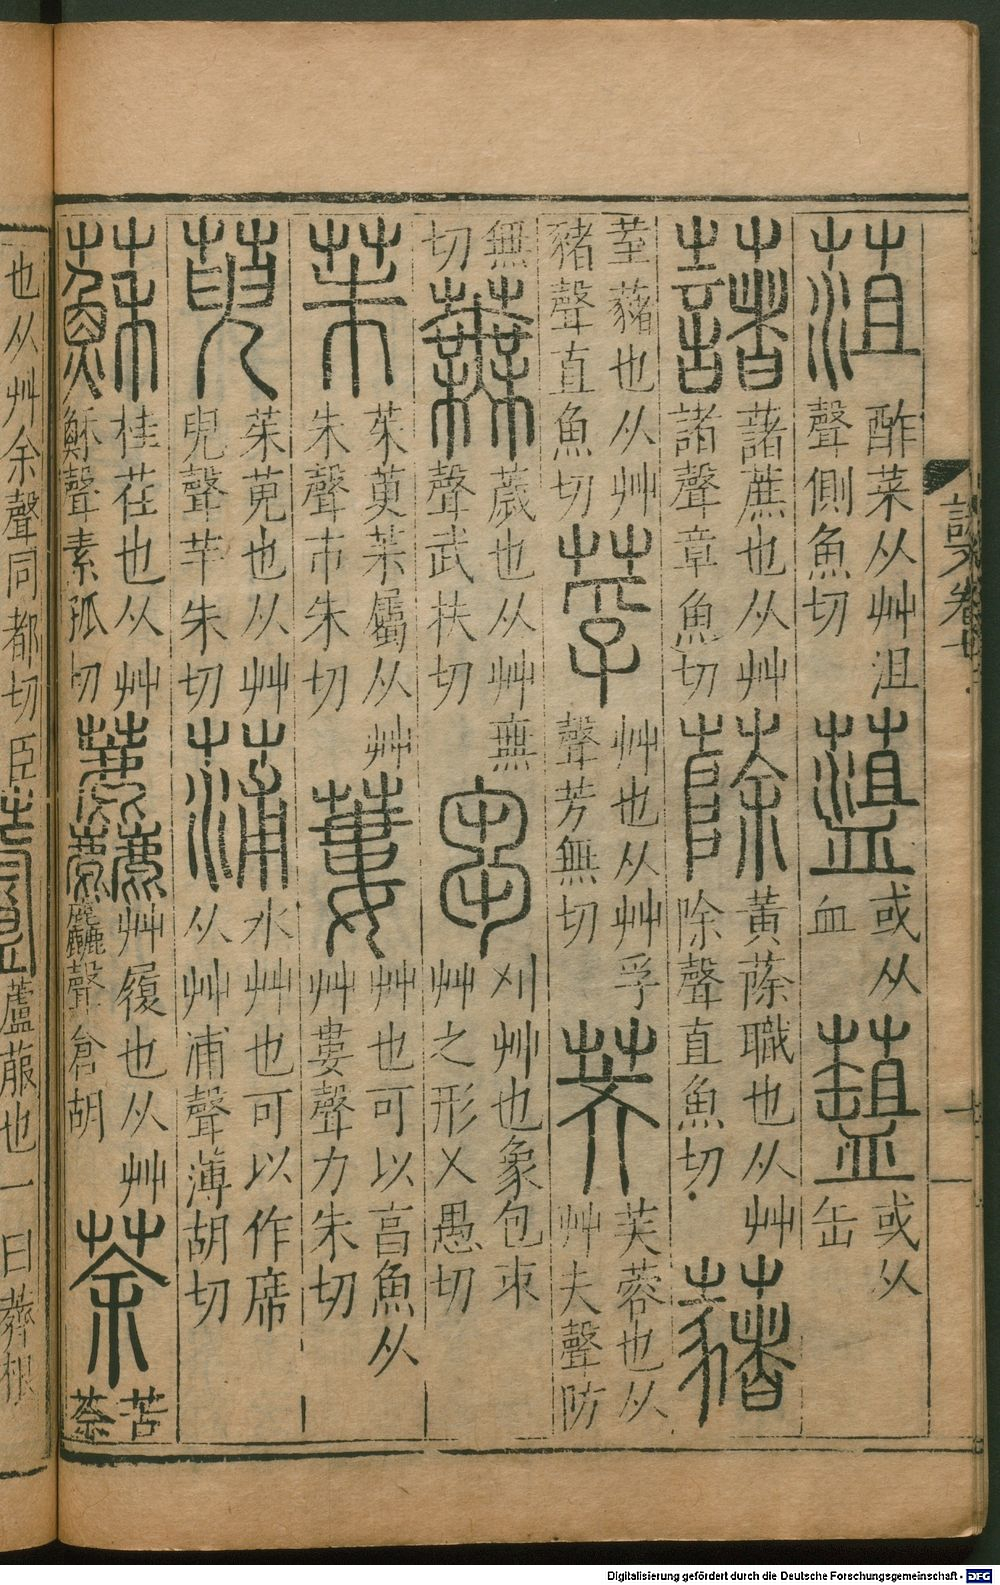 菹
酢菜从艸沮
聲側魚切
或从
血
或从
缶
藷
藷蔗也从艸
諸聲章魚切
蒢
黃蒢職也从艸
除聲直魚切
藸
荎藸也从艸
豬聲直魚切
莩
艸也从艸孚
聲芳無切
芙
芙蓉也从
艸夫聲防
無
切
蕪
薉也从艸無
聲武扶切
芻
刈艸也象包朿
艸之形乂愚切
茱
茱萸茮屬从艸
朱聲市朱切
蔞
艸也可以亯魚从
艸婁聲力朱切
萸
茱萸也从艸
臾聲羊朱切
蒲
水艸也可以作席
从艸浦聲薄胡切
蘇
桂荏也从艸
穌聲素孤切
艸履也从艸
麤聲倉胡
荼
苦
荼
也从艸余聲同都切
蘆
蘆菔也一曰薺根
說文卷七
十一
Digitalisierung gefördert durch die Deutsche Forschungsgemeinschaft - DFG